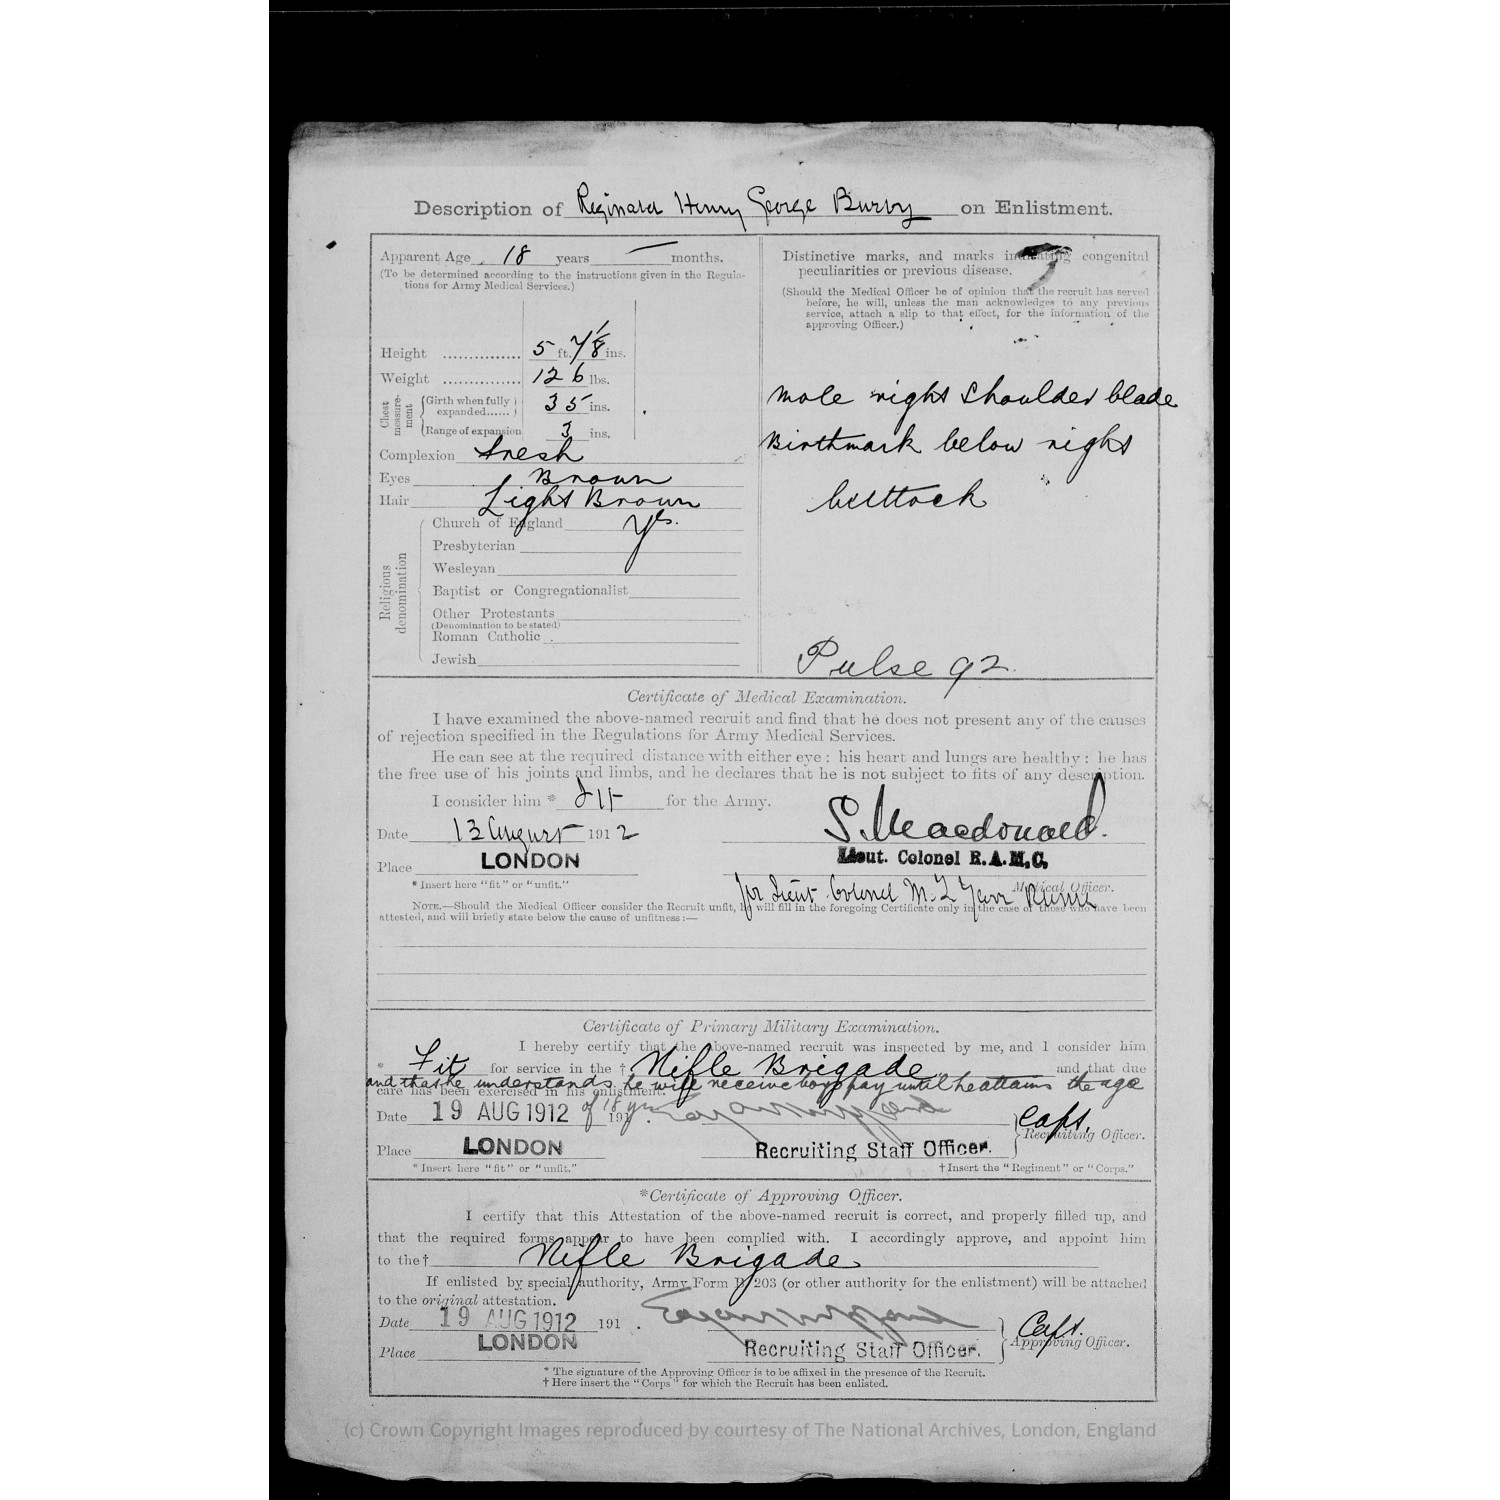 Description of Reginald Henry George Burby on Enlistment.
Apparent Age 18 years — months.
(To be determined according to the instructions given in the Regula-
tions for Army Medical Services.)
Height ............... 5 ft. 7 1/8 ins.
Weight ............... 126 lbs.
Chest measure-ment
Girth when fully expanded...... 35 ins.
Range of expansion 3 ins.
Complexion fresh
Eyes Brown
Hair Light Brown
Religious denomination
Church of England Yes.
Presbyterian
Wesleyan
Baptist or Congregationalist
Other Protestants
(Denomination to be stated)
Roman Catholic
Jewish
Distinctive marks, and marks indicating congenital
peculiarities or previous disease.
(Should the Medical Officer be of opinion that the recruit has served
before, he will, unless the man acknowledges to any previous
service, attach a slip to that effect, for the information of the
approving Officer.)
mole right shoulder blade
Birthmark below right
buttock
Pulse 92.
Certificate of Medical Examination.
I have examined the above-named recruit and find that he does not present any of the causes
of rejection specified in the Regulations for Army Medical Services.
He can see at the required distance with either eye: his heart and lungs are healthy: he has
the free use of his joints and limbs, and he declares that he is not subject to fits of any description.
I consider him * fit for the Army.
Date 13 August 1912
S. Macdonald.
Place LONDON
Lieut. Colonel R.A.M.C.
* Insert here "fit" or "unfit."
Medical Officer.
for Lieut. Colonel M. T. Yarr RAMC
NOTE.—Should the Medical Officer consider the Recruit unfit, he will fill in the foregoing Certificate only in the case of those who have been
attested, and will briefly state below the cause of unfitness:—
Certificate of Primary Military Examination.
I hereby certify that the above-named recruit was inspected by me, and I consider him
* Fit for service in the † Rifle Brigade and that due
care has been exercised in his enlistment.
and that he understands he will receive boys pay until he attains the age
of 18 yrs.
Date 19 AUG 1912 191 .
Capt.
Recruiting Officer.
Place LONDON
Recruiting Staff Officer.
* Insert here "fit" or "unfit."
† Insert the "Regiment" or "Corps."
*Certificate of Approving Officer.
I certify that this Attestation of the above-named recruit is correct, and properly filled up, and
that the required forms appear to have been complied with. I accordingly approve, and appoint him
to the† Rifle Brigade
If enlisted by special authority, Army Form B. 203 (or other authority for the enlistment) will be attached
to the original attestation.
Date 19 AUG 1912 191 .
Capt.
Approving Officer.
Place LONDON
Recruiting Staff Officer.
* The signature of the Approving Officer is to be affixed in the presence of the Recruit.
† Here insert the "Corps" for which the Recruit has been enlisted.
(c) Crown Copyright Images reproduced by courtesy of The National Archives, London, England